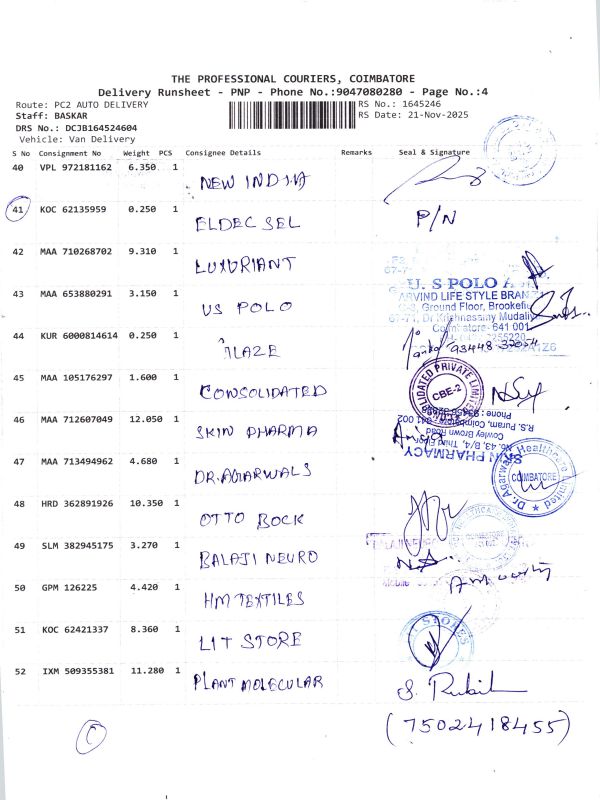 THE PROFESSIONAL COURIERS, COIMBATORE
Delivery Runsheet - PNP - Phone No.:9047080280 - Page No.:4
Route: PC2 AUTO DELIVERY
RS No.: 1645246
Staff: BASKAR
RS Date: 21-Nov-2025
DRS No.: DCJB164524604
Vehicle: Van Delivery
S No Consignment No Weight PCS Consignee Details Remarks Seal & Signature
40 VPL 972181162 6.350 1 NEW INDIA
41 KOC 62135959 0.250 1 ELDEC SEL P/N
42 MAA 710268702 9.310 1 LUXURIANT
43 MAA 653880291 3.150 1 US POLO
U. S POLO A
ARVIND LIFE STYLE BRAN
Ground Floor, Brookefi
67-71, Dr Krishnasamy Mudaliy
Coimbatore- 641 001
44 KUR 6000814614 0.250 1 93448-32054
45 MAA 105176297 1.600 1 CONSOLIDATED
IDATED PRIVATE LIMITED
CBE-2
46 MAA 712607049 12.050 1 SKIN PHARMA
N PHARMACY
No.43, B/4, Third
Cowley Brown Road
R.S. Puram, Coimbatore 641 002
Phone :
47 MAA 713494962 4.680 1 DR.AGARWALS
Dr. Agarwals Healthcare Limited
COIMBATORE
48 HRD 362891926 10.350 1 OTTO BOCK
49 SLM 382945175 3.270 1 BALAJI NEURO
50 GPM 126225 4.420 1 HM TEXTILES
51 KOC 62421337 8.360 1 LIT STORE
52 IXM 509355381 11.280 1 PLANT MOLECULAR
(7502418455)